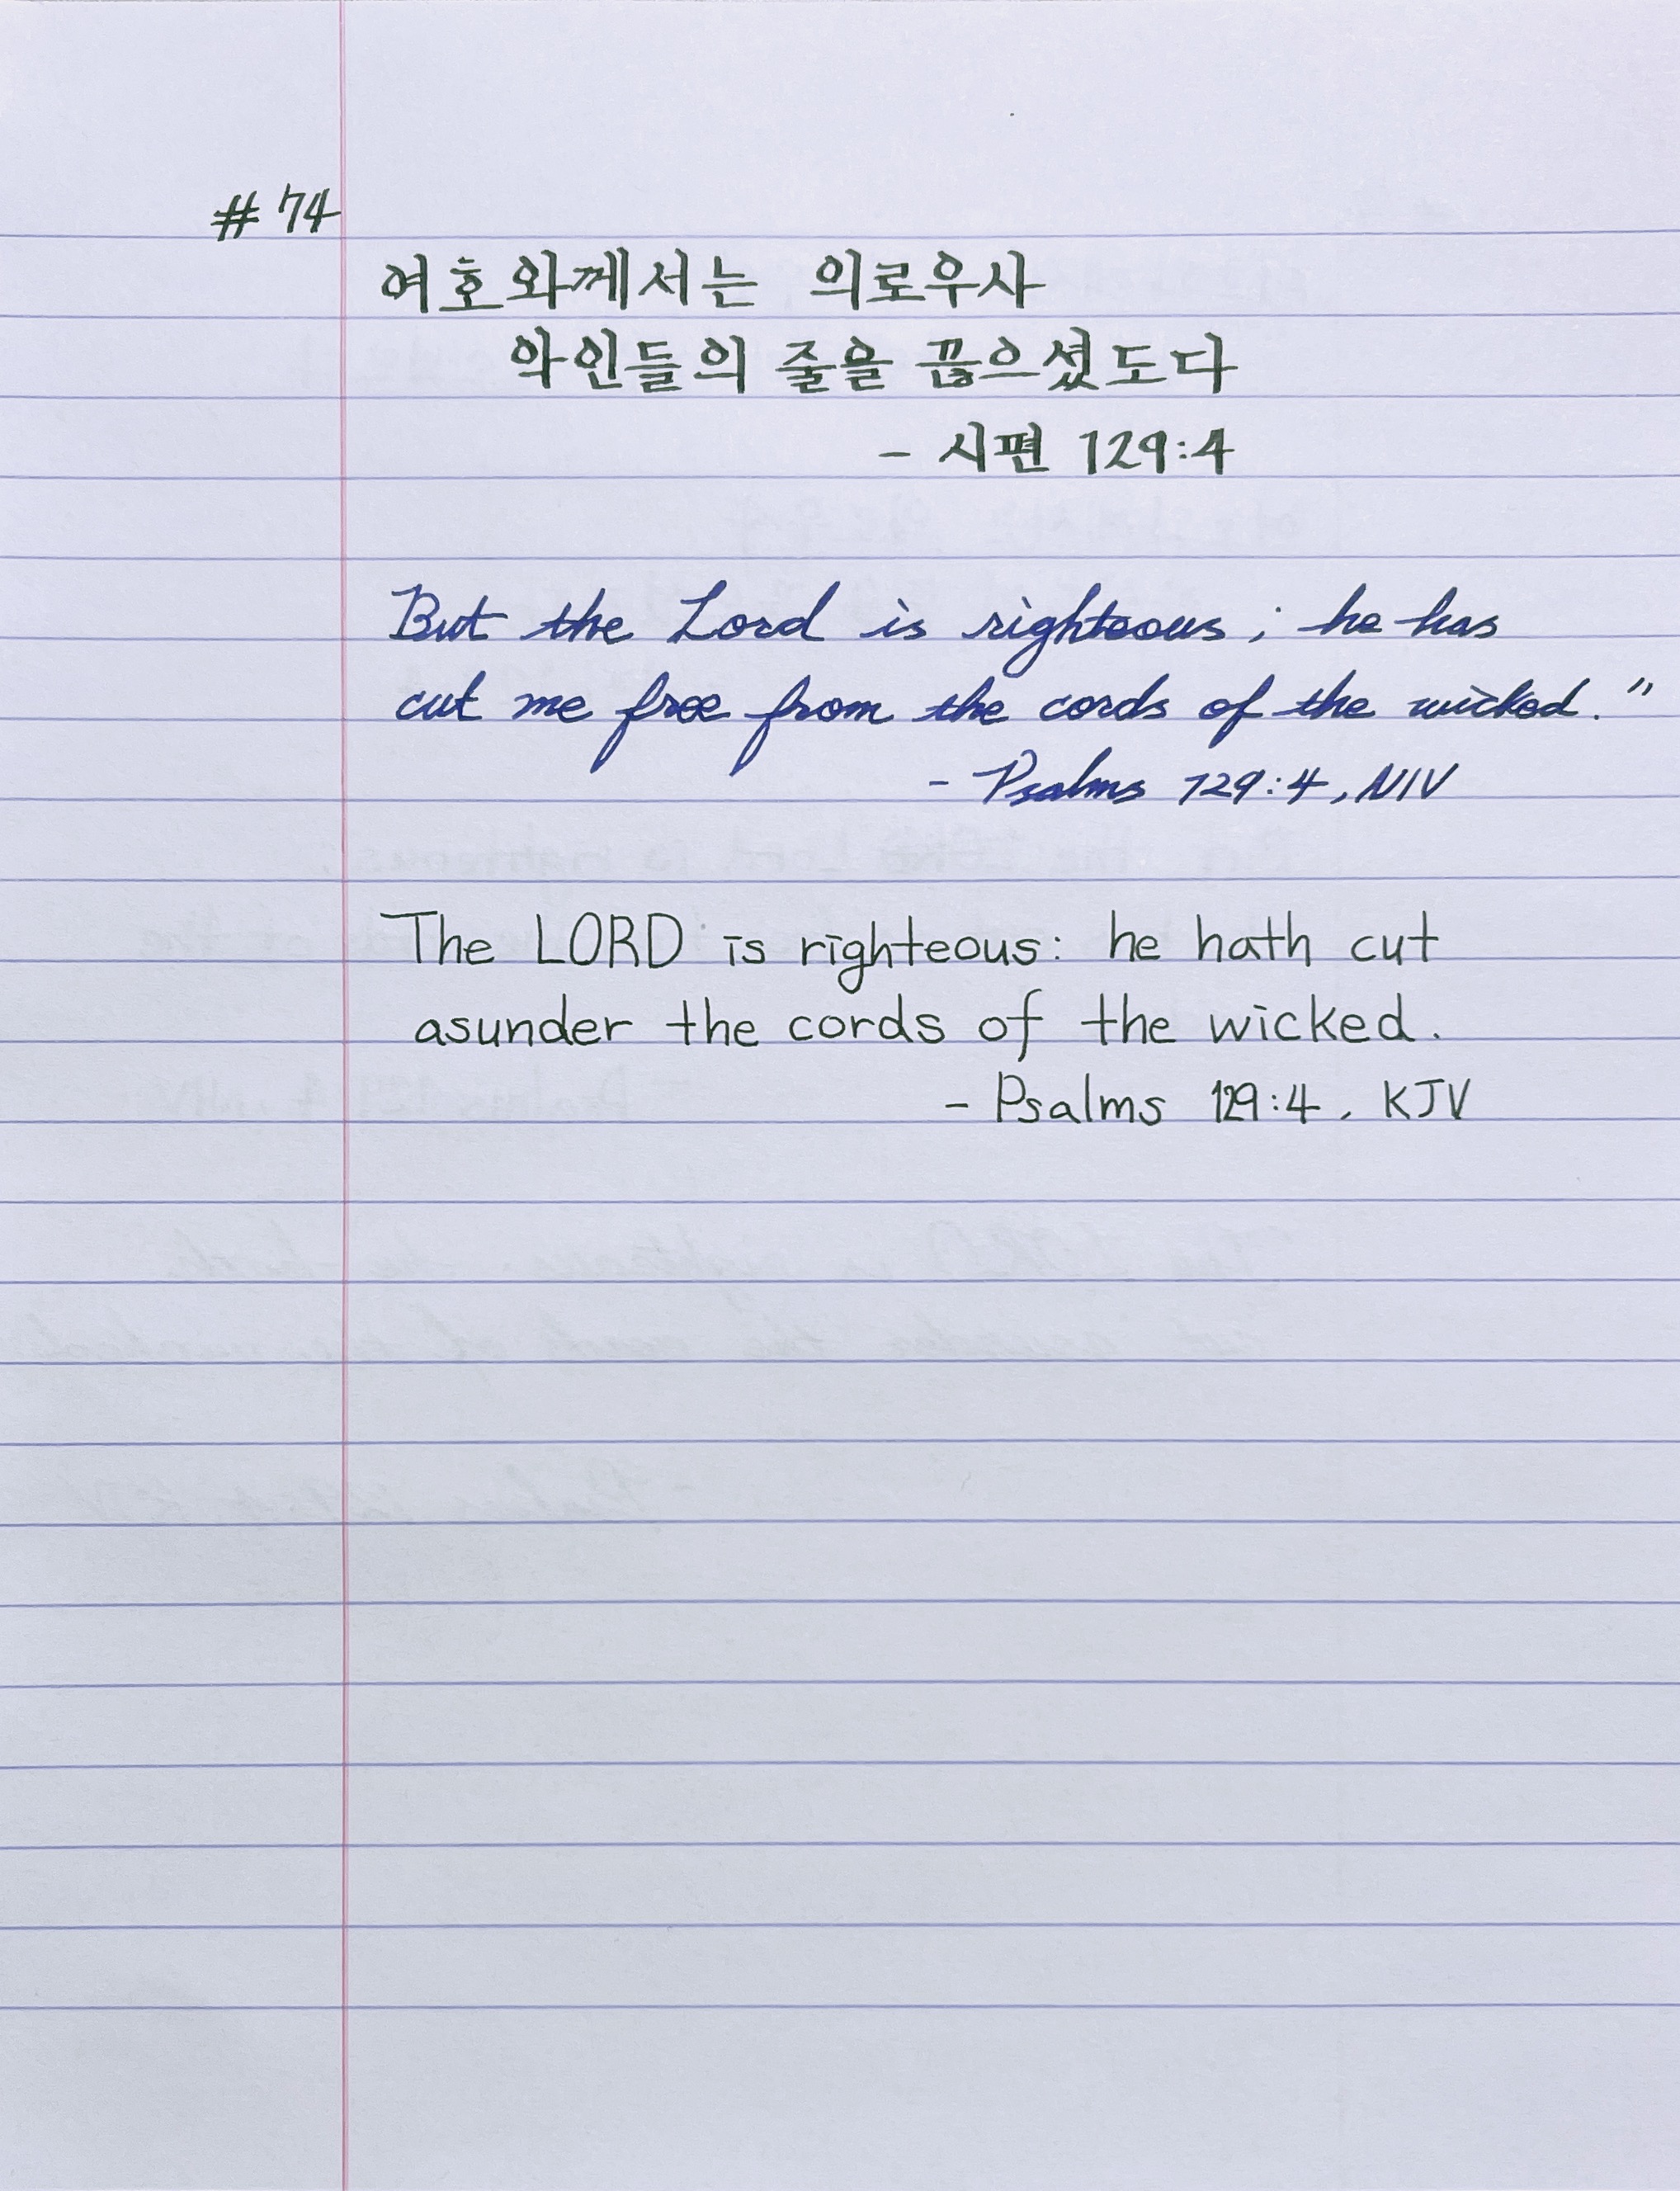 # 74
여호와께서는 의로우사
악인들의 줄을 끊으셨도다
- 시편 129:4
But the Lord is righteous; he has
cut me free from the cords of the wicked."
- Psalms 129:4, NIV
The LORD is righteous: he hath cut
asunder the cords of the wicked.
- Psalms 129:4, KJV